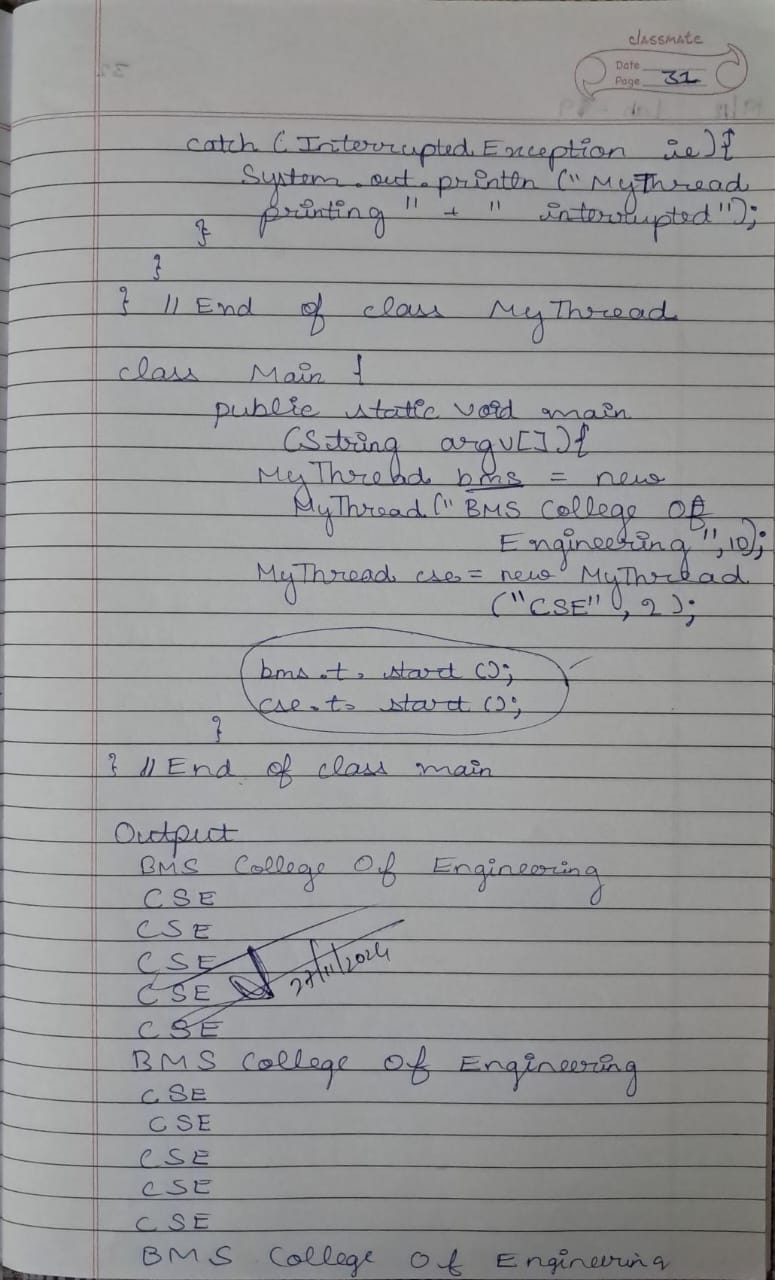 classmate
Date
Page 31
catch (InterruptedException ie){
System.out.println("MyThread
printing" + " interrupted");
}
}
} // End of class MyThread
class Main {
public static void main
(String argv[]){
MyThread bms = new
MyThread("BMS College Of
Engineering", 10);
MyThread cse = new MyThread
("CSE", 2);
bms.t.start();
cse.t.start();
}
} // End of class main
Output
BMS College Of Engineering
CSE
CSE
CSE
CSE
27/11/2024
CSE
BMS College Of Engineering
CSE
CSE
CSE
CSE
CSE
BMS College Of Engineering